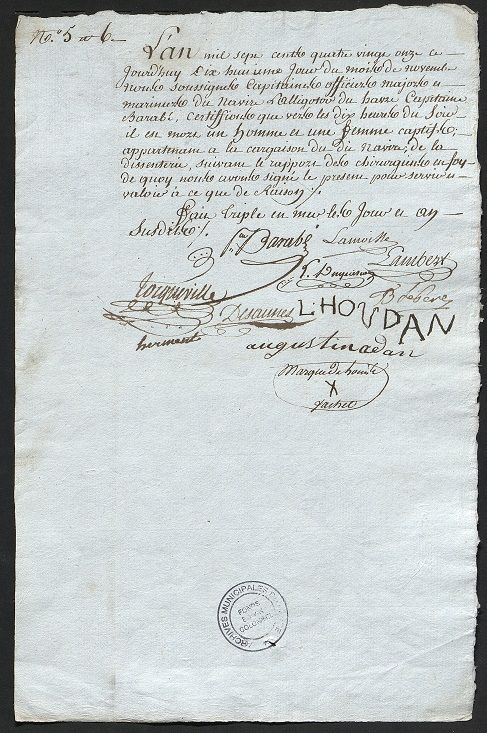 No. 5 et 6.
L'an mil sept cents quatre vingt onze ce
Jourd'huy dix huitieme Jour du mois de novembre
nous soussignés Capitaines officiers majors et
mariniers du Navire L'alligator du havre Capitaine
Barabé, Certiffions que vers les dix heures du soir
il est mort un homme et une femme captifs,
appartenant a la cargaison du dit navire, de la
dissenterie, suivant le rapport des chirurgiens en foy
de quoy nous avons signé le present pour servir et
valoir à ce que de Raison ./.
Fait triple en mer les Jour et an
susdits ./.
Barabé Lamoisse
Lambert
Tocqueville
Desaunes L: HOUDAN
herment augustin adan
Marque de honoré
X
vachet
ARCHIVES MUNICIPALES
FONDS